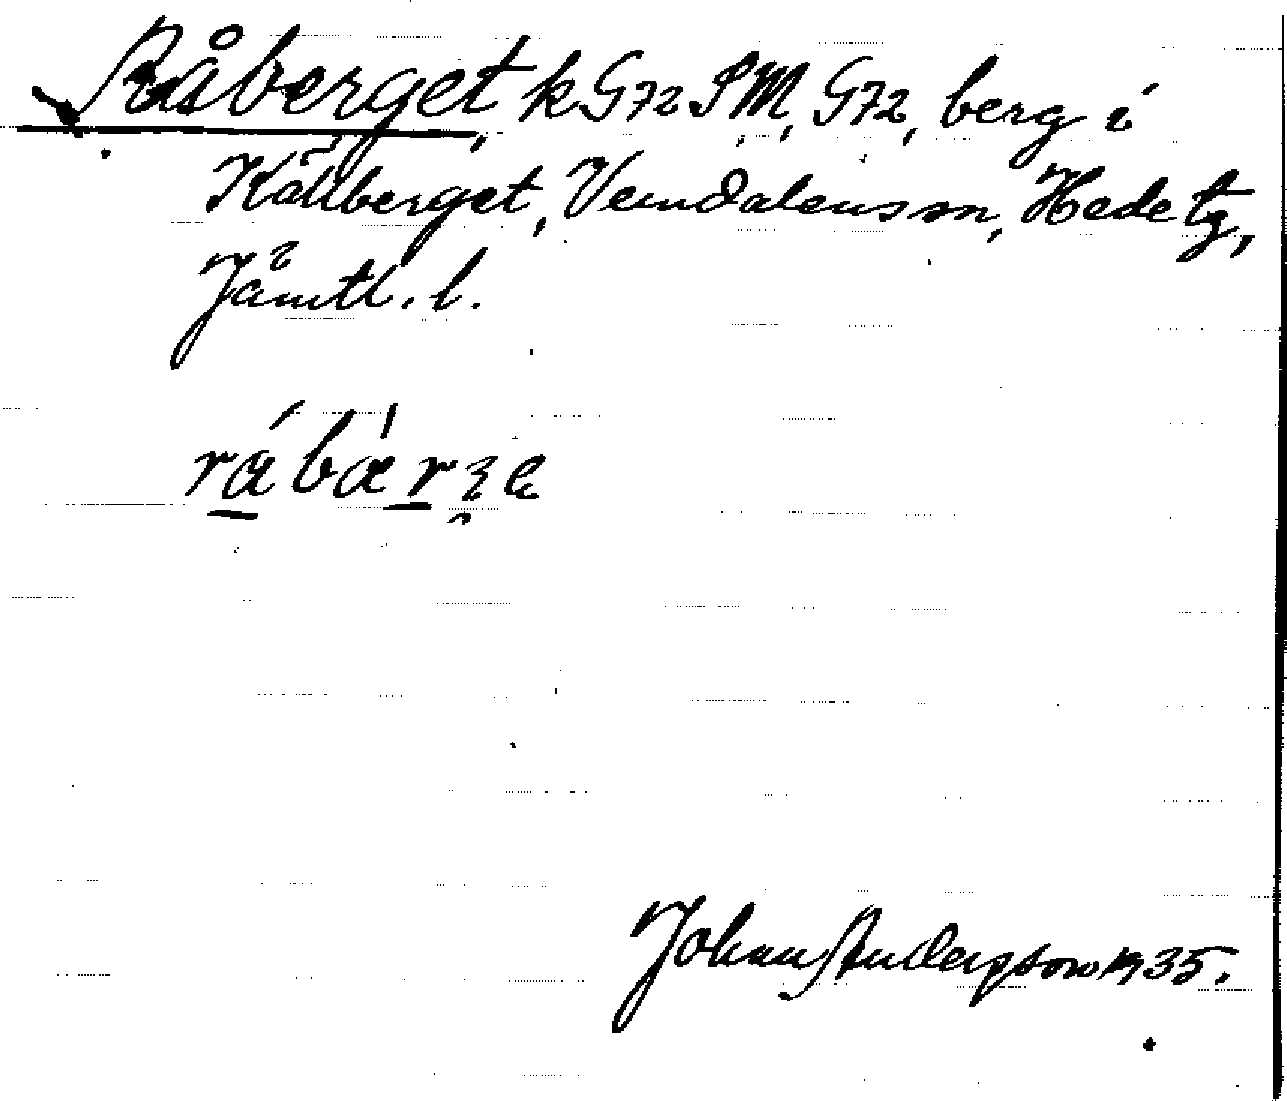 Råberget k G72 SM, G72, berg i
Kållberget, Vemdalens sn, Hede tg,
Jämtl. l.
Johan Andersson 1935.